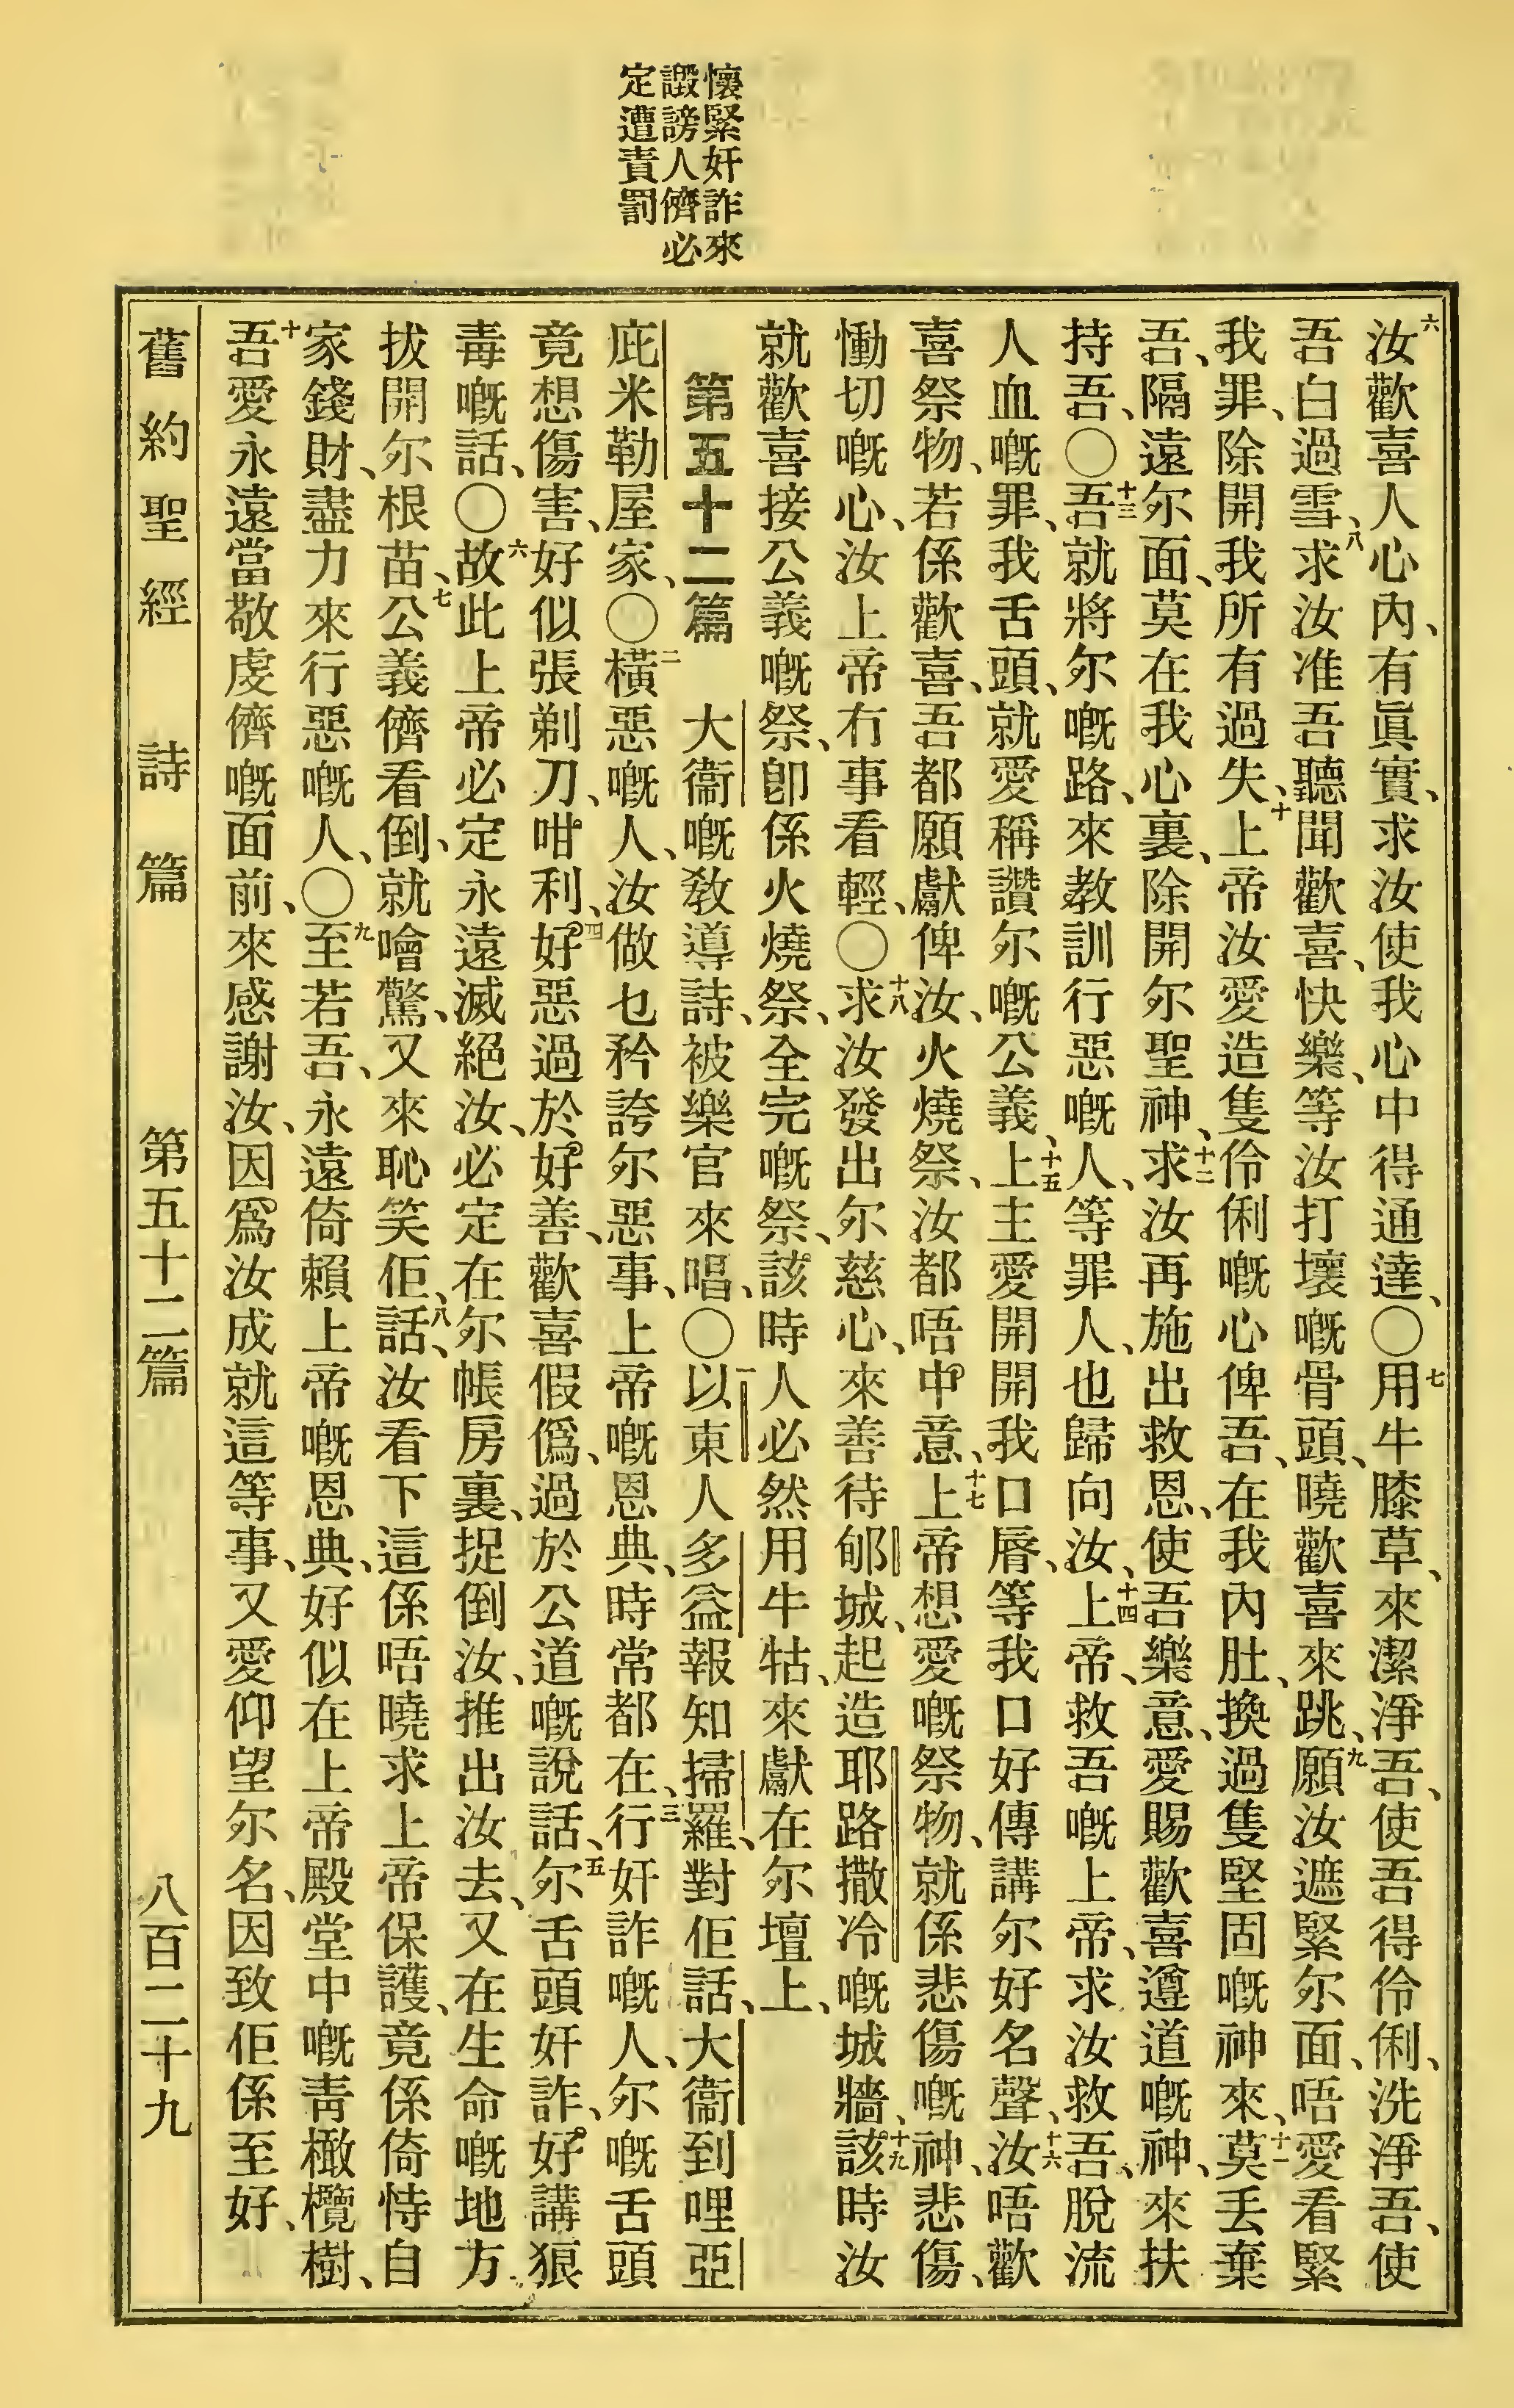 懷緊奸詐來
譭謗人儕必
定遭責罰
六汝歡喜人心內、有眞實、求汝使我心中得通達、〇七用牛膝草、來潔淨吾、使吾得伶俐、洗淨吾、使
吾白過雪、八求汝准吾聽聞歡喜、快樂、等汝打壞嘅骨頭、曉歡喜來跳、九願汝遮緊尔面、唔愛看緊
我罪、除開我所有過失、十上帝汝愛造隻伶俐嘅心俾吾、在我內肚、換過隻堅固嘅神來、十一莫丢棄
吾、隔遠尔面、莫在我心裏、除開尔聖神、十二求汝再施出救恩、使吾樂意、愛賜歡喜遵道嘅神、來扶
持吾、〇十三吾就將尔嘅路、來教訓行惡嘅人、等罪人、也歸向汝、十四上帝、救吾嘅上帝、求汝救吾、脫流
人血嘅罪、我舌頭、就愛稱讚尔嘅公義、十五上主愛開開我口脣、等我口好傳講尔好名聲、十六汝唔歡
喜祭物、若係歡喜、吾都願獻俾汝、火燒祭、汝都唔中意、十七上帝想愛嘅祭物、就係悲傷嘅神、悲傷、
慟切嘅心、汝上帝冇事看輕、〇十八求汝發出尔慈心、來善待郇城、起造耶路撒冷嘅城牆、十九該時汝
就歡喜接公義嘅祭、卽係火燒祭、全完嘅祭、該時人必然用牛牯、來獻在尔壇上、
第五十二篇 大衞嘅教導詩、被樂官來唱、〇一以東人多益報知掃羅、對佢話、大衞到哩亞
庇米勒屋家、〇二橫惡嘅人、汝做乜矜誇尔惡事、上帝嘅恩典、時常都在、三行奸詐嘅人、尔嘅舌頭
竟想傷害、好似張剃刀、咁利、四好惡過於好善、歡喜假僞、過於公道嘅說話、五尔舌頭奸詐、好講狠
毒嘅話、〇六故此上帝必定永遠滅絕汝、必定在尔帳房裏、捉倒汝、推出汝去、又在生命嘅地方
拔開尔根苗、七公義儕看倒、就噲驚、又來恥笑佢、八話、汝看下這係唔曉求上帝保護、竟係倚恃自
家錢財、盡力來行惡嘅人、〇九至若吾、永遠倚賴上帝嘅恩典、好似在上帝殿堂中嘅靑橄欖樹、
十吾愛永遠當敬虔儕嘅面前、來感謝汝、因爲汝成就這等事、又愛仰望尔名、因致佢係至好、
舊約聖經 詩篇 第五十二篇 八百二十九